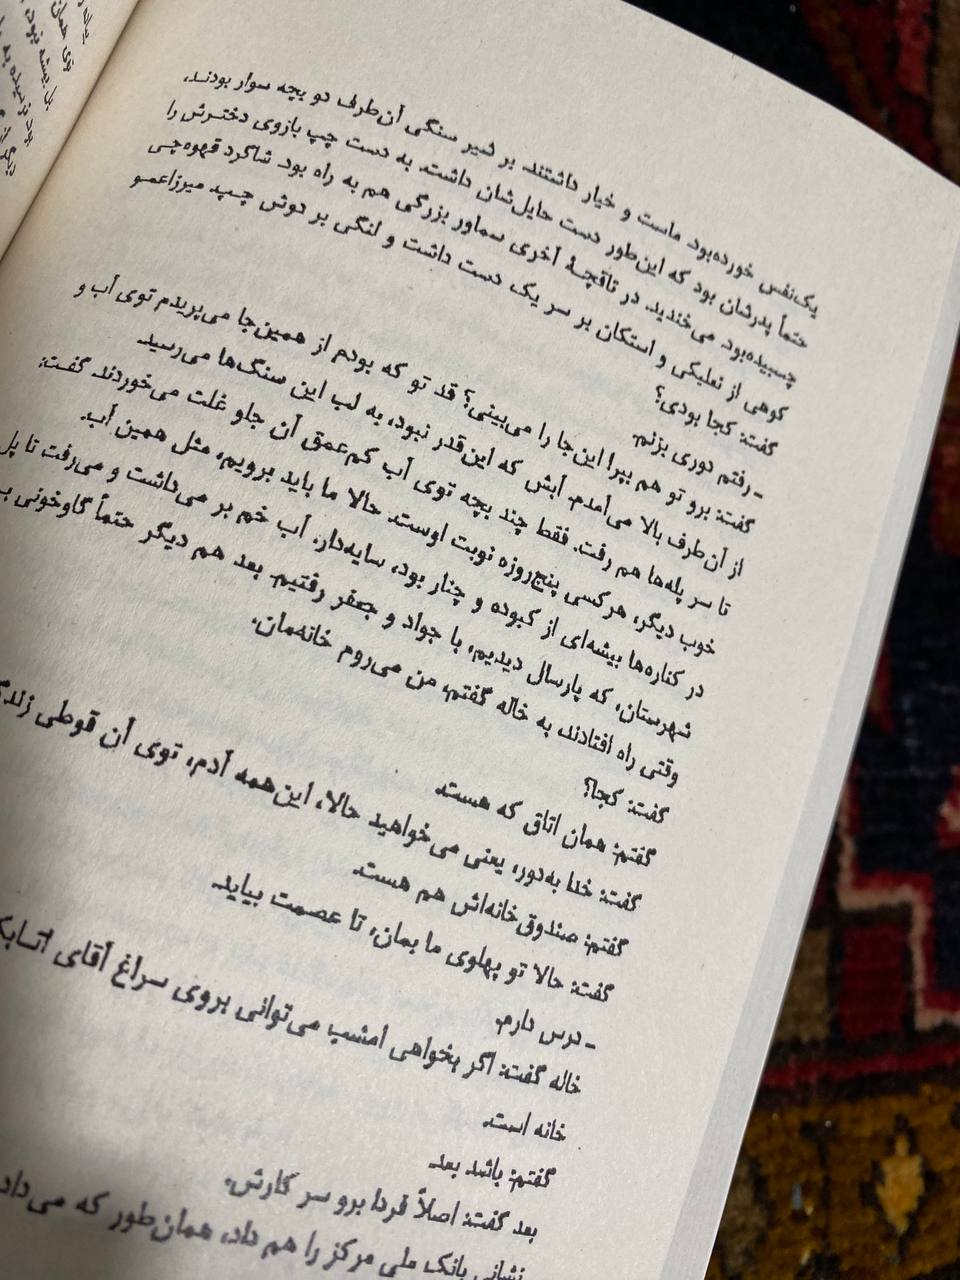 یک‌نفس خورده‌بود. ماست و خیار داشتند. بر شیر سنگی آن‌طرف دو بچه سوار بودند.
حتماً پدرشان بود که این‌طور دست حایل‌شان داشت. به دست چپ بازوی دخترش را
چسبیده‌بود. می‌خندید. در تاقچهٔ آخری سماور بزرگی هم به راه بود. شاگرد قهوه‌چی
کوهی از نعلبکی و استکان بر سر یک دست داشت و لنگی بر دوش چپ. میرزاعمو
گفت: کجا بودی؟
ـ رفتم دوری بزنم.
گفت: برو تو هم بپر! این‌جا را می‌بینی؟ قد تو که بودم از همین‌جا می‌پریدم توی آب و
از آن‌طرف بالا می‌آمدم. آبش که این‌قدر نبود، به لب این سنگ‌ها می‌رسید.
تا سر پله‌ها هم رفت. فقط چند بچه توی آب کم‌عمق آن جلو غلت می‌خوردند. گفت:
خوب دیگر، هرکسی پنج‌روزه نوبت اوست. حالا ما باید برویم، مثل همین آب.
در کناره‌ها بیشه‌ای از کبوده و چنار بود، سایه‌دار. آب خم بر می‌داشت و می‌رفت تا پل
شهرستان، که پارسال دیدیم، با جواد و جعفر رفتیم. بعد هم دیگر حتماً گاوخونی
وقتی راه افتادند به خاله گفتم، من می‌روم خانه‌مان.
گفت: کجا؟
گفتم: همان اتاق که هست.
گفت: خدا به‌دور، یعنی می‌خواهید حالا، این‌همه آدم، توی آن قوطی
گفتم: صندوق‌خانه‌اش هم هست.
گفت: حالا تو پهلوی ما بمان، تا عصمت بیاید.
ـ درس دارم.
خاله گفت: اگر بخواهی امشب می‌توانی بروی سراغ آقای
خانه است.
گفتم: باشد بعد.
بعد گفت: اصلاً فردا برو سر کارش.
نشانی بانک ملی مرکز را هم داد، همان‌طور که می‌داد